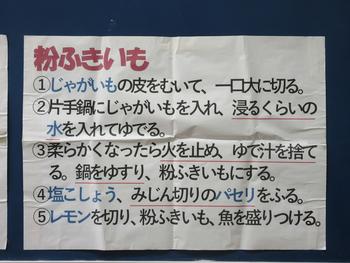 粉ふきいも
①じゃがいもの皮をむいて、一口大に切る。
②片手鍋にじゃがいもを入れ、浸るくらいの
水を入れてゆでる。
③柔らかくなったら火を止め、ゆで汁を捨て
る。鍋をゆすり、粉ふきいもにする。
④塩こしょう、みじん切りのパセリをふる。
⑤レモンを切り、粉ふきいも、魚を盛りつける。